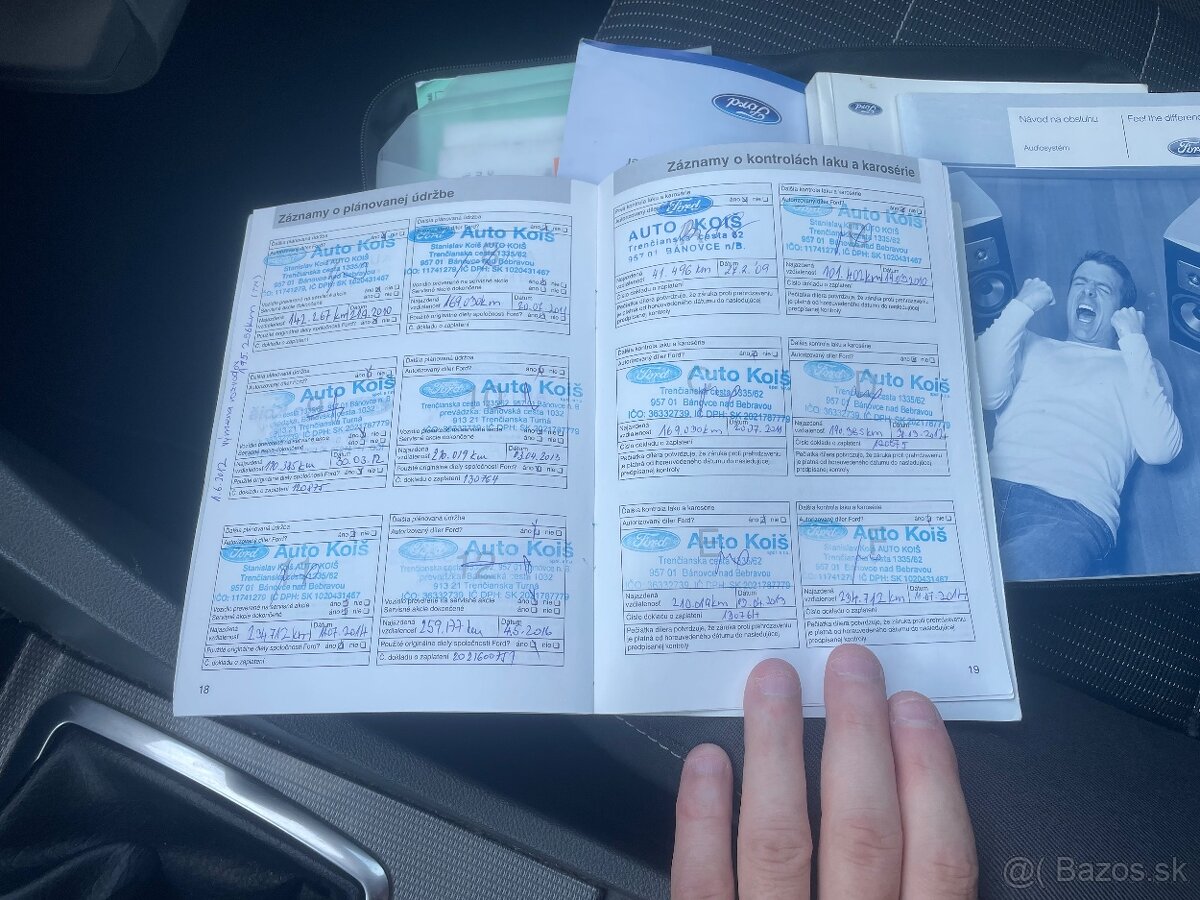 Ford
Ford
Návod na obsluhu
Feel the difference
Audiosystém
Ford
Záznamy o plánovanej údržbe
Ďalšia plánovaná údržba
Autorizovaný díler Ford?
áno nie
Auto Koiš
Stanislav Koiš AUTO KOIŠ
Trenčianska cesta 1335/62
957 01 Bánovce nad Bebravou
IČO: 11741279, IČ DPH: SK 1020431467
Vozidlo preverené na servisné akcie áno nie
Servisné akcie dokončené áno nie
Najazdená vzdialenosť 142.267 km
Dátum
Použité originálne diely spoločnosti Ford? áno nie
Č. dokladu o zaplatení
Ďalšia plánovaná údržba
Ford
Auto Koiš
Stanislav Koiš AUTO KOIŠ
Trenčianska cesta 1335/62
957 01 Bánovce nad Bebravou
IČO: 11741279, IČ DPH: SK 1020431467
Vozidlo preverené na servisné akcie áno nie
Servisné akcie dokončené áno nie
Najazdená vzdialenosť 169.090km
Dátum 20.07.2011
Použité originálne diely spoločnosti Ford? áno nie
Č. dokladu o zaplatení
Ďalšia plánovaná údržba
Autorizovaný díler Ford? áno nie
Auto Koiš
Vozidlo preverené na servisné akcie áno nie
Najazdená vzdialenosť
Dátum 30.03.12
Použité originálne diely spoločnosti Ford? áno nie
Č. dokladu o zaplatení 120875
Ďalšia plánovaná údržba
Autorizovaný díler Ford? áno nie
Ford
Auto Koiš
prevádzka: Bánovská cesta 1032
913 21 Trenčianska Turná
Servisné akcie dokončené áno nie
Najazdená vzdialenosť 210.019km
Dátum 13.04.2013
Použité originálne diely spoločnosti Ford? áno nie
Č. dokladu o zaplatení 130764
Ďalšia plánovaná údržba
Autorizovaný díler Ford? áno nie
Ford
Auto Koiš
Stanislav Koiš AUTO KOIŠ
Trenčianska cesta 1335/62
957 01 Bánovce nad Bebravou
IČO: 11741279, IČ DPH: SK 1020431467
Vozidlo preverené na servisné akcie áno nie
Servisné akcie dokončené áno nie
Najazdená vzdialenosť 234.712 km
Dátum 11.07.2014
Použité originálne diely spoločnosti Ford? áno nie
Č. dokladu o zaplatení
Ďalšia plánovaná údržba
Autorizovaný díler Ford? áno nie
Ford
Auto Koiš
prevádzka: Bánovská cesta 1032
913 21 Trenčianska Turná
Vozidlo preverené na servisné akcie áno nie
Servisné akcie dokončené áno nie
Najazdená vzdialenosť 259.177 km
Dátum 4.5.2016
Použité originálne diely spoločnosti Ford? áno nie
Č. dokladu o zaplatení
18
Záznamy o kontrolách laku a karosérie
Prvá kontrola laku a karosérie
áno nie
Ford
AUTO KOIŠ
Trenčianska cesta 62
957 01 BÁNOVCE n/B.
Najazdená vzdialenosť 41.496 km
Dátum 27.2.09
Číslo dokladu o zaplatení
Pečiatka dílera potvrdzuje, že záruka proti prehrdzaveniu
je platná od horeuvedeného dátumu do nasledujúcej
predpísanej kontroly
Ďalšia kontrola laku a karosérie
Autorizovaný díler Ford? áno nie
Ford
Auto Koiš
Stanislav Koiš AUTO KOIŠ
Trenčianska cesta 1335/62
957 01 Bánovce nad Bebravou
IČO: 11741279, IČ DPH: SK 1020431467
Najazdená vzdialenosť 101.402km
Dátum
Číslo dokladu o zaplatení
Pečiatka dílera potvrdzuje, že záruka proti prehrdzaveniu
je platná od horeuvedeného dátumu do nasledujúcej
predpísanej kontroly
Ďalšia kontrola laku a karosérie
Autorizovaný díler Ford? áno nie
Ford
Auto Koiš
Trenčianska cesta 1335/62
957 01 Bánovce nad Bebravou
IČO: 36332739, IČ DPH: SK 2021787779
Najazdená vzdialenosť 169.090km
Dátum 20.07.2011
Číslo dokladu o zaplatení
Pečiatka dílera potvrdzuje, že záruka proti prehrdzaveniu
je platná od horeuvedeného dátumu do nasledujúcej
predpísanej kontroly
Ďalšia kontrola laku a karosérie
Autorizovaný díler Ford? áno nie
Ford
Auto Koiš
Trenčianska cesta 1335/62
957 01 Bánovce nad Bebravou
Najazdená vzdialenosť 190.385km
Dátum
Číslo dokladu o zaplatení 120875
Pečiatka dílera potvrdzuje, že záruka proti prehrdzaveniu
je platná od horeuvedeného dátumu do nasledujúcej
predpísanej kontroly
Ďalšia kontrola laku a karosérie
Autorizovaný díler Ford? áno nie
Ford
Auto Koiš
Trenčianska cesta 1335/62
957 01 Bánovce nad Bebravou
IČO: 36332739, IČ DPH: SK 2021787779
Najazdená vzdialenosť 210.019km
Dátum 13.04.2013
Číslo dokladu o zaplatení 130764
Pečiatka dílera potvrdzuje, že záruka proti prehrdzaveniu
je platná od horeuvedeného dátumu do nasledujúcej
predpísanej kontroly
Ďalšia kontrola laku a karosérie
Autorizovaný díler Ford? áno nie
Ford
Auto Koiš
Stanislav Koiš AUTO KOIŠ
Trenčianska cesta 1335/62
957 01 Bánovce nad Bebravou
IČO: 11741279, IČ DPH: SK 1020431467
Najazdená vzdialenosť 234.712 km
Dátum 11.07.2014
Číslo dokladu o zaplatení
Pečiatka dílera potvrdzuje, že záruka proti prehrdzaveniu
je platná od horeuvedeného dátumu do nasledujúcej
predpísanej kontroly
19
@( Bazos.sk